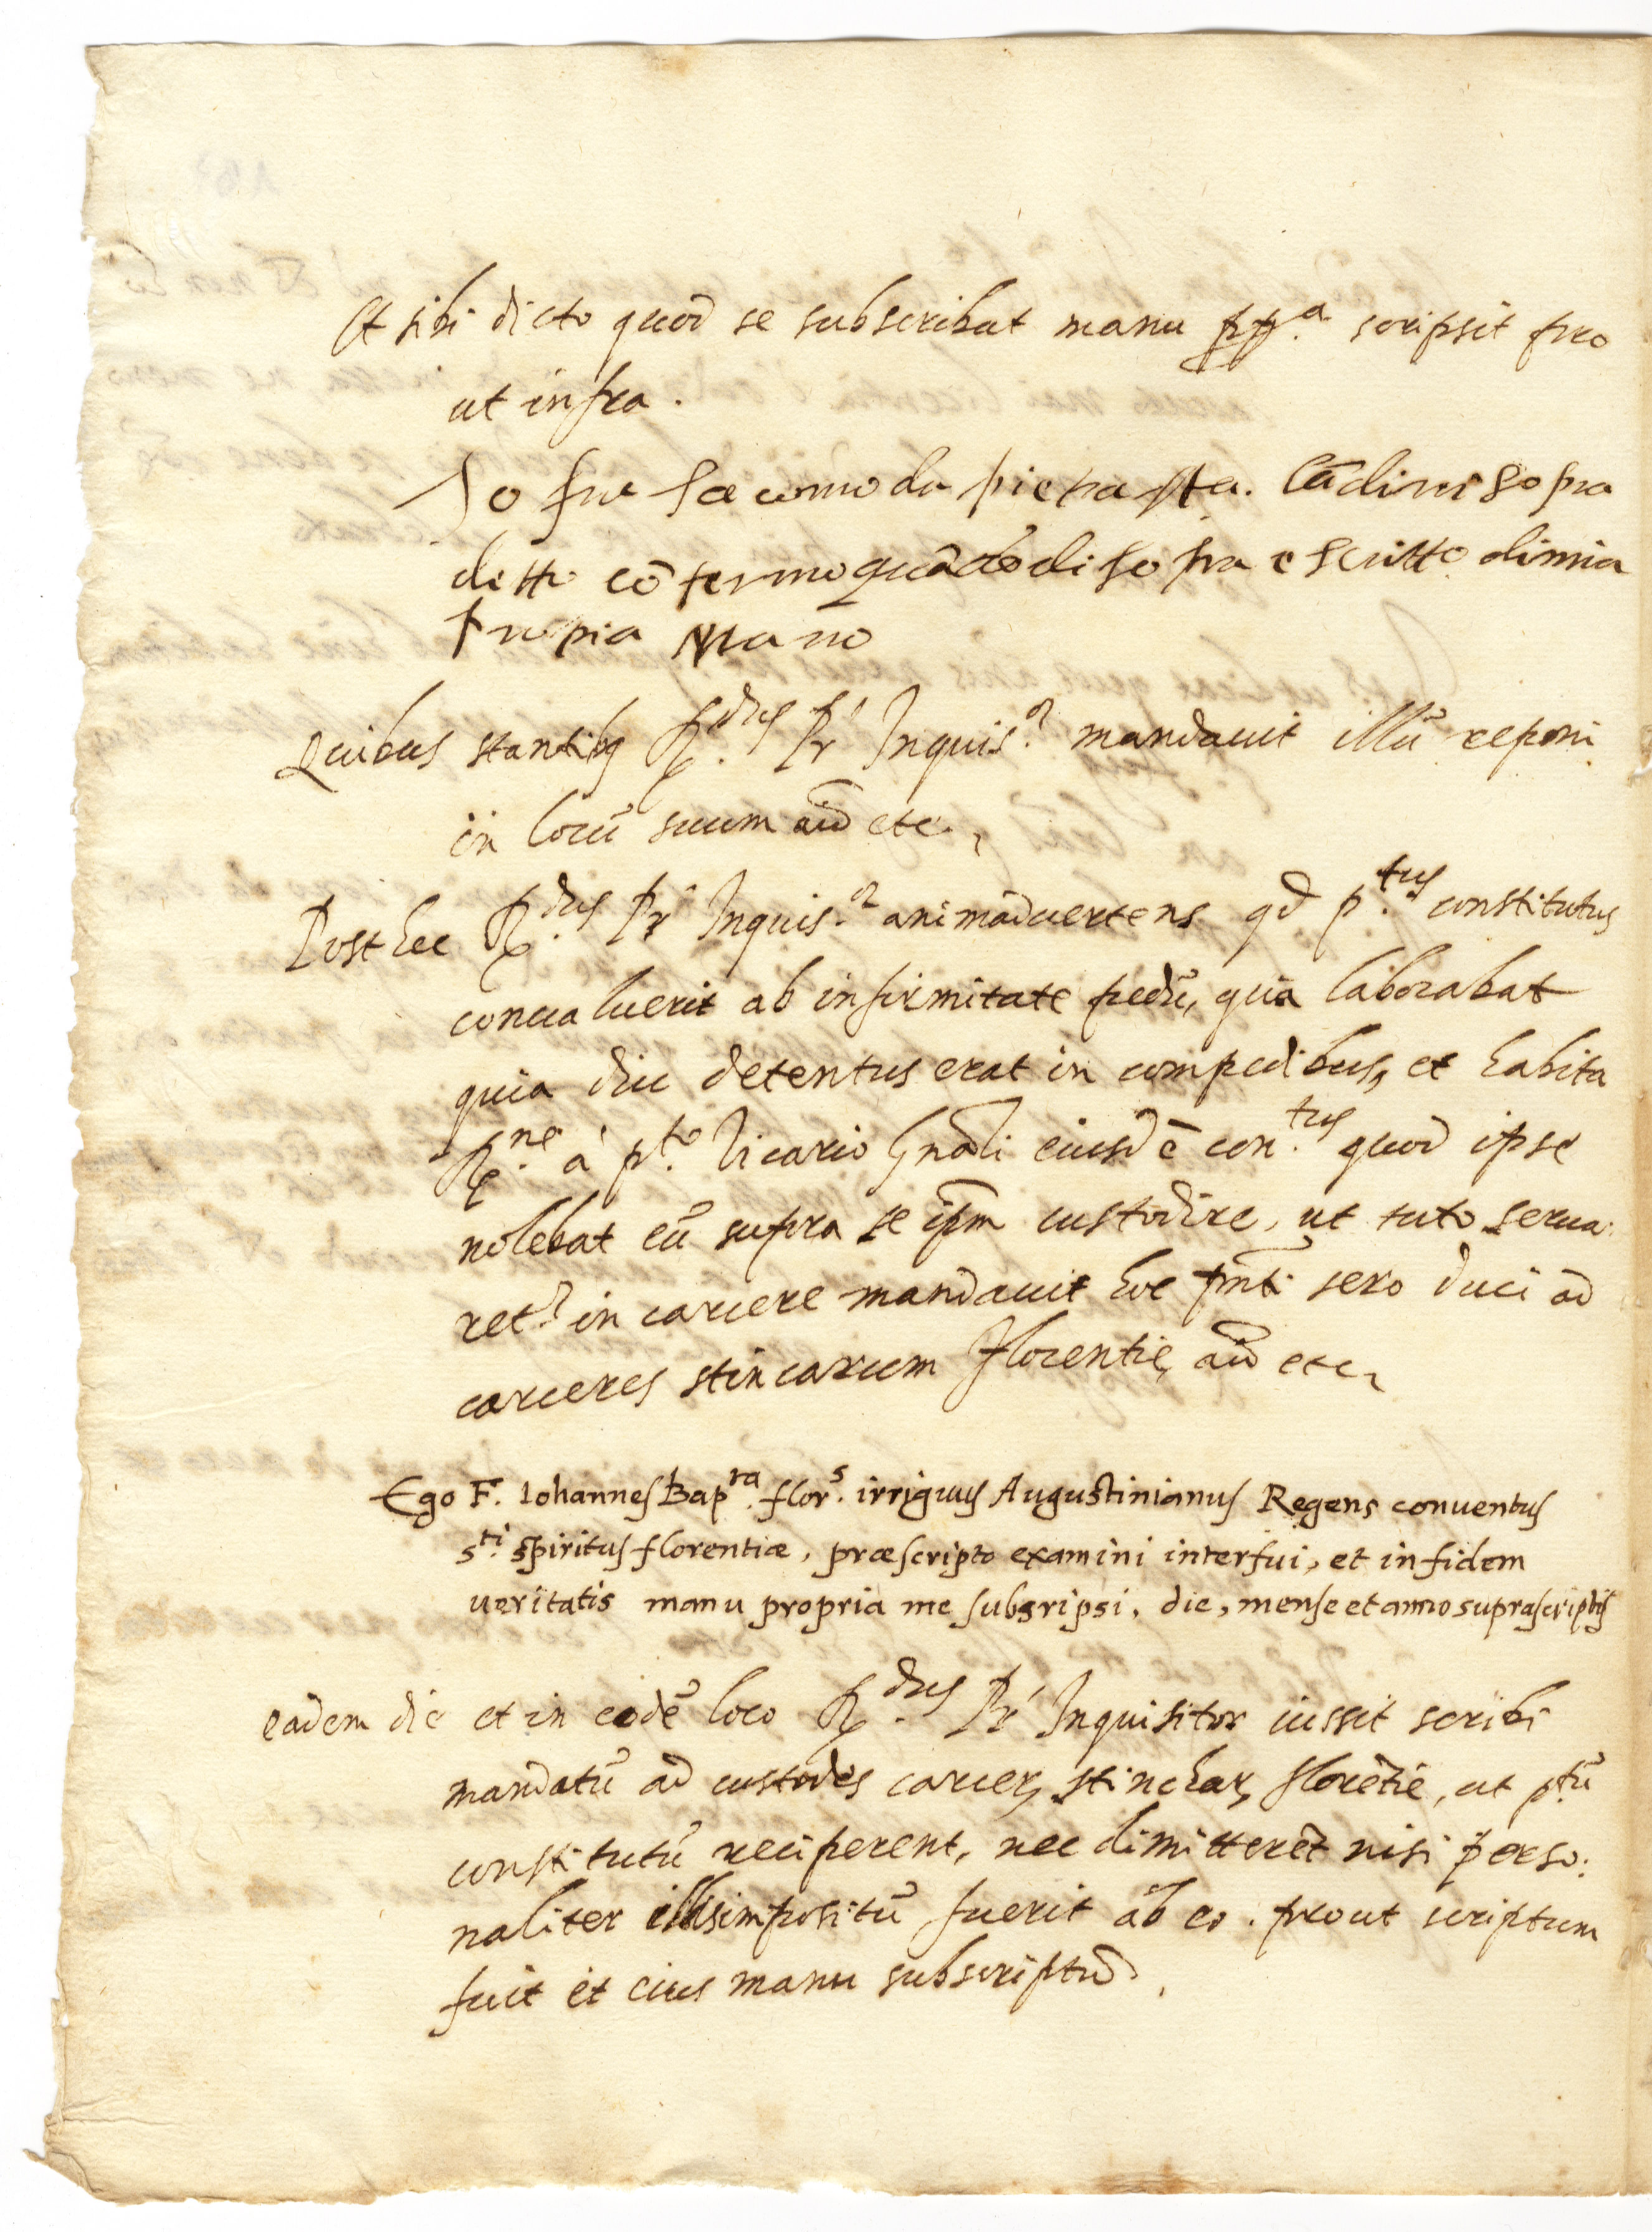 Et sibi dicto quod se subscribat manu pp.ª scripsit pro
ut infra.
Io fra Iacomo da pietra sta. Cādini sopra
detto cōfermo quāto di sopra e scritto di mia
propia mano
Quibus stantibꝫ R.dus Pr Inquis.r mandauit illū reponi
in locū suum aīo etc.
Post hec R.dus Pr Inquis.r animaduertens qd p.tus constitutus
conualuerit ab infirmitate pedū, qua laborabat
quia diu detentus erat in compedibus, et habita
R.ne à p.to Vicario Gnāli eiusdē con.tus quod ipse
nolebat eū supra se ipm custodire, ut tuto serua:
ret.r in carcere mandauit hoc pnti sero duci ad
carceres stincarum Florentie, aīo etc.
Ego F. Iohannes Bap.ta flor.s irriguus Augustinianus Regens conuentus
s.ti spiritus florentiæ, præscripto examini interfui, et in fidem
ueritatis manu propria me subsripsi, die, mense et anno suprascriptis
eadem die et in eodē loco R.dus Pr Inquisitor iussit scribi
mandatū ad custodes carcerꝝ stincharꝝ florētie, ut p.tū
constitutū reciperent, nec dimitterēt nisi perso:
naliter impositū fuerit ab eo. prout scriptum
fuit et eius manu subscriptū.